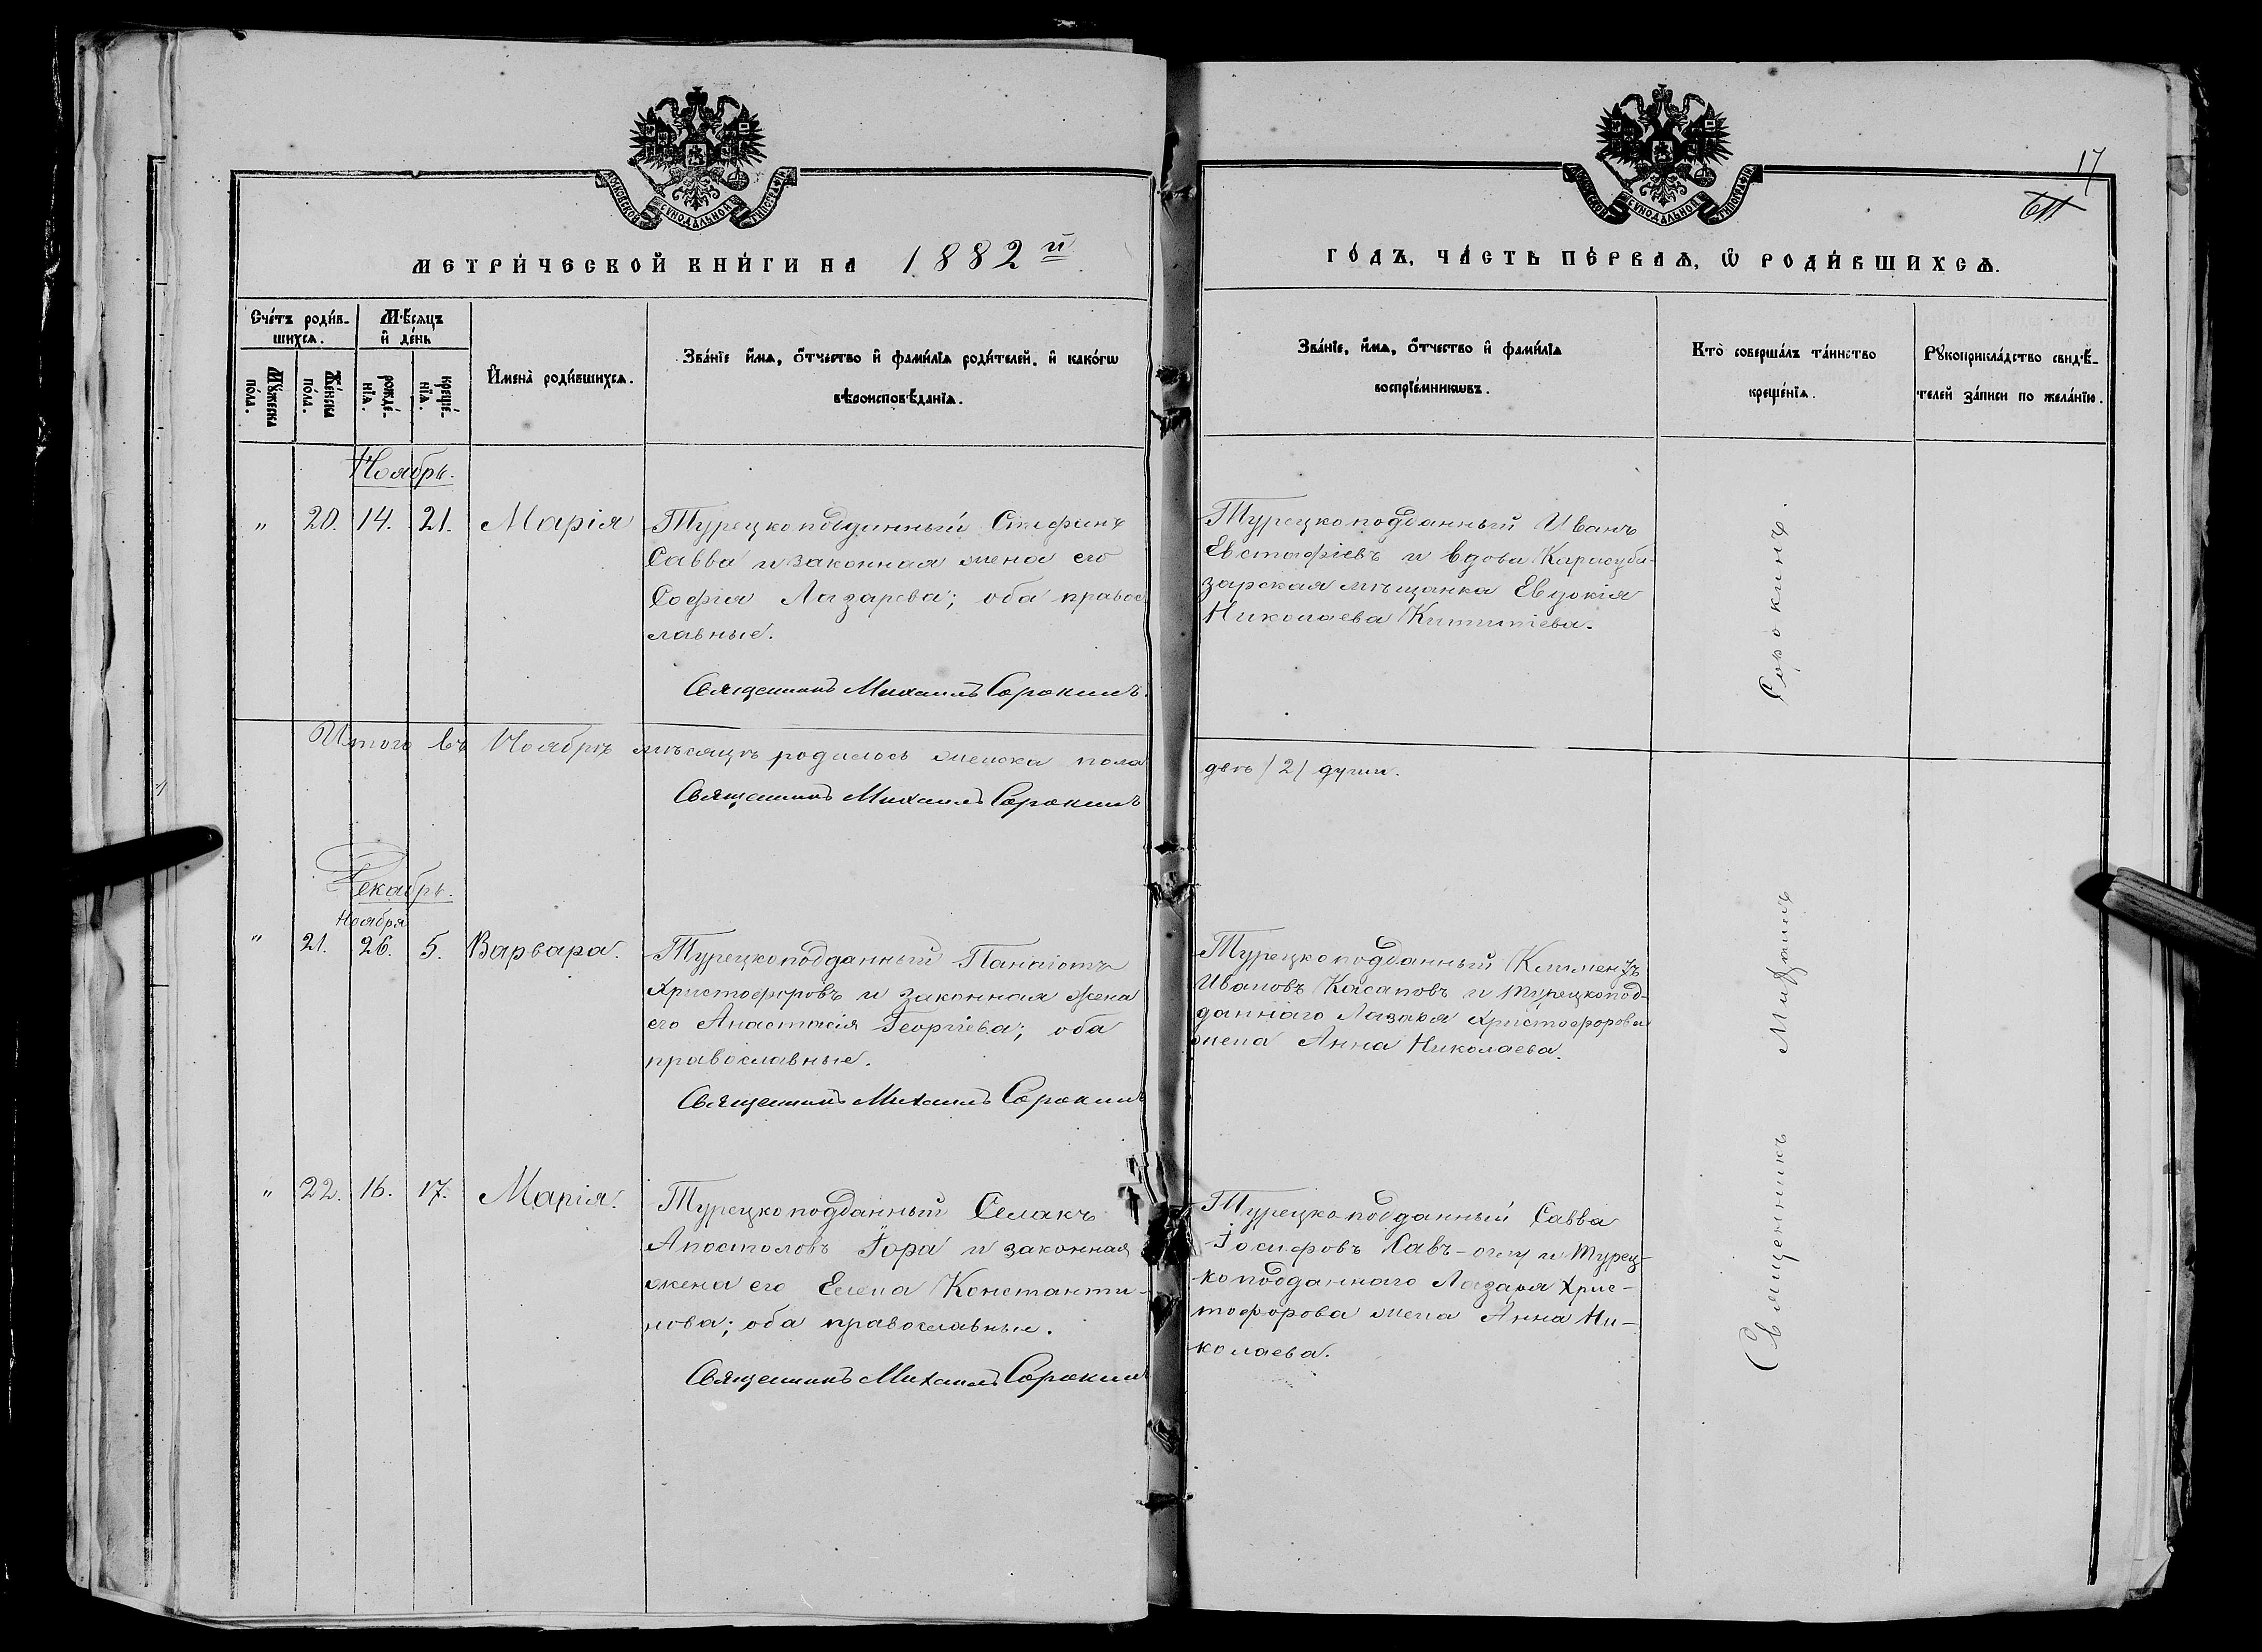 МОСКОВСКОЙ СѴНОДАЛЬНОЙ ТИПОГРАФІИ
МЕТРИ́ЧЕСКОЙ КНИ́ГИ НА 1882й
Сче́тъ роди́в-
шихсѧ.
Мѣ́сѧцъ
и҆ де́нь
Мꙋ́жеска
по́ла.
Же́нска
по́ла.
рожде́-
нїѧ.
креще́-
нїѧ.
И҆мена̀ роди́вшихсѧ.
Зва́нїе и҆́мѧ, ѻ҆́тчество и҆ фами́лїѧ роди́телей, и҆ како́гѡ
вѣроисповѣ́данїѧ.
Ноябрь.
" 20. 14. 21. Марія
Турецкоподданный Стефанъ
Савва и законная жена его
Софія Лазарева; оба правос
лавные.
Священникъ Михаилъ Сорокинъ.
Итого въ Ноябрѣ мѣсяцѣ родилось женска пола
Священникъ Михаилъ Сорокинъ
Декабрь.
Ноября
" 21. 26. 5. Варвара.
Турецкоподданный Панаіотъ
Христофоровъ и законная жена
его Анастасія Георгіева; оба
православные.
Священникъ Михаилъ Сорокинъ
" 22. 16. 17. Марія.
Турецкоподданный Селакъ
Апостоловъ Гора и законная
жена его Елена Константи-
нова; оба православные.
Священникъ Михаилъ Сорокинъ
17
МОСКОВСКОЙ СѴНОДАЛЬНОЙ ТИПОГРАФІИ
ГО́ДЪ, ЧА́СТЬ ПЕ́РВАѦ, Ѡ҆ РОДИ́ВШИХСѦ.
Зва́нїе, и҆́мѧ, ѻ҆́тчество и҆ фами́лїѧ
воспрїе́мникѡвъ.
Кто̀ соверша́лъ та́инство
креще́нїѧ.
Рꙋкоприкла́дство свидѣ́-
телей за́писи по жела́нїю.
Турецкоподданный Иванъ
Евстафіевъ и вдова Карасуба-
зарская мѣщанка Евдокія
Николаева
двѣ /2/ души.
Турецкоподданный
Ивановъ Касаповъ и турецкопод-
даннаго Лазаря Христофорова
жена Анна Николаева.
Турецкоподданный Савва
Іосифовъ Савъ-оглу и турец-
коподданнаго Лазаря Хрис-
тофорова жена Анна Ни-
колаева.
Священникъ Михаилъ Сорокинъ.